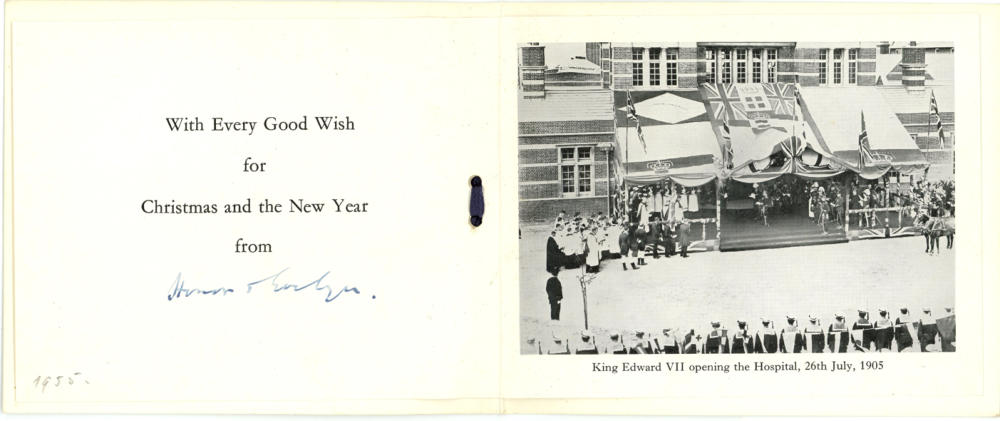 With Every Good Wish
for
Christmas and the New Year
from
Honor & Evelyn.
1955.
King Edward VII opening the Hospital, 26th July, 1905